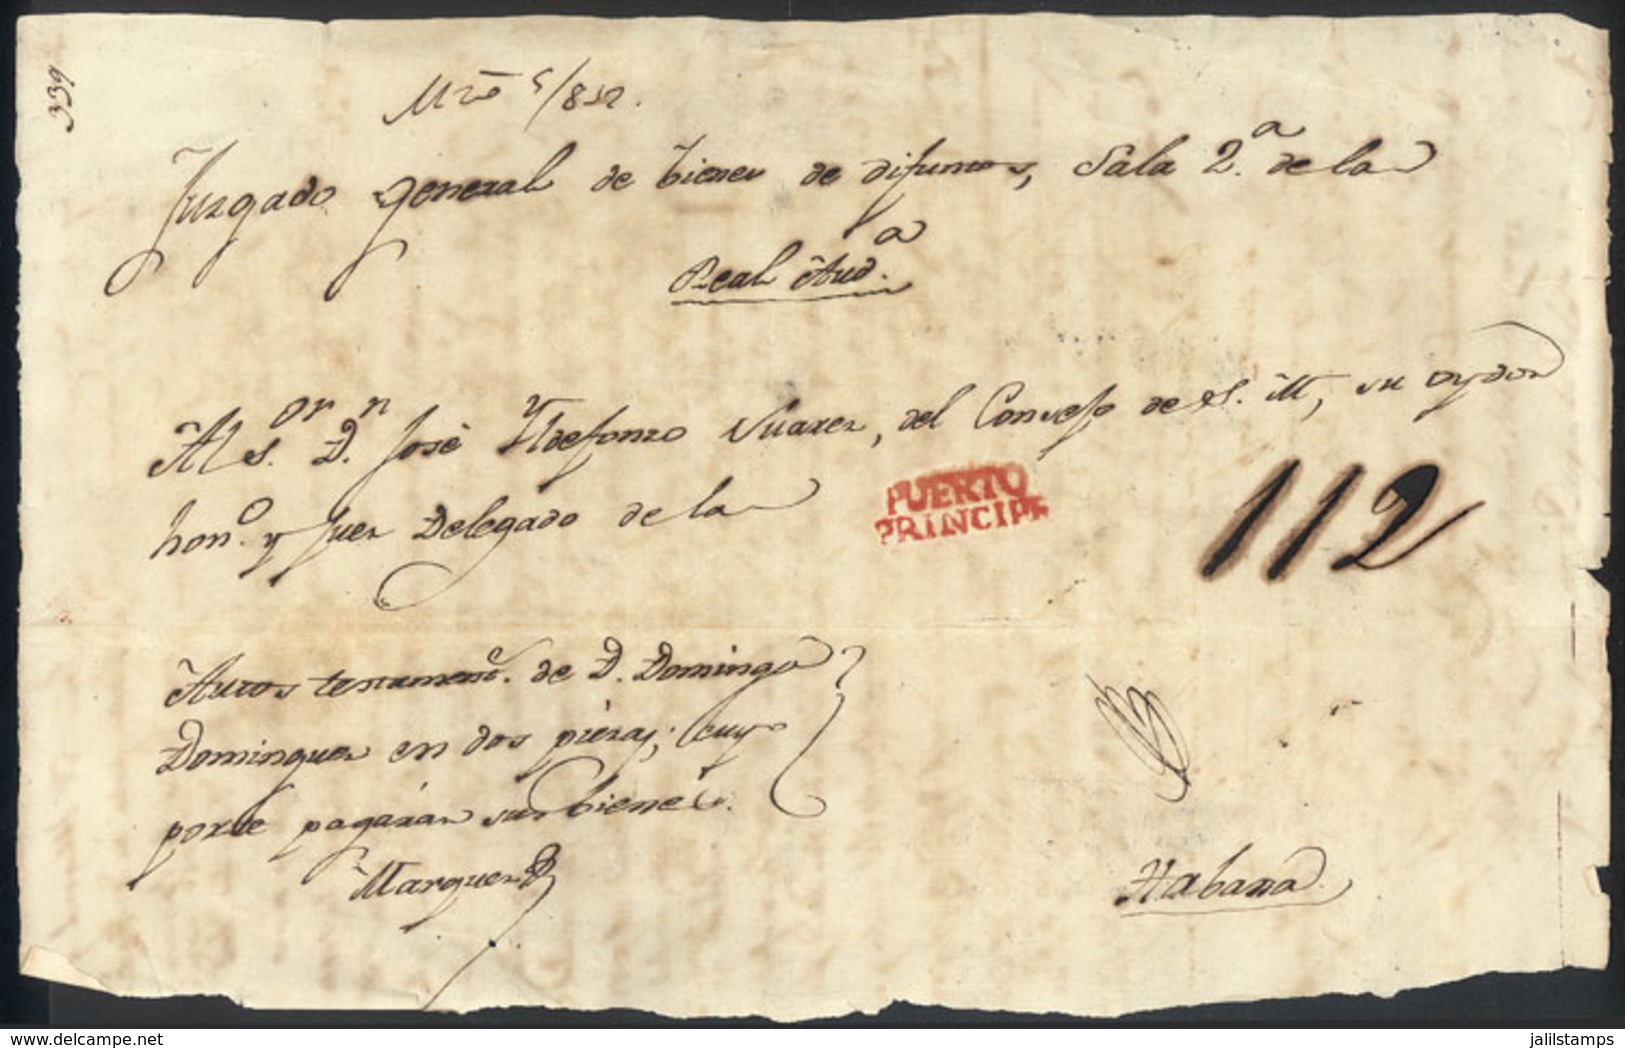 339
Mzo 5/832.
Juzgado general de bienes de difuntos, Sala 2.a de la
Real Aud.a
Al S.or D.n José Yldefonzo Suarez, del Consejo de S. M, su oydor
hon.o y Juez Delegado de la
PUERTO
PRINCIPE
112
Autos testament.e de D. Domingo
Dominguez en dos piezas; cuyo
porte pagarán sus bienes.
Marquez
Habana.
www.delcampe.net
jalilstamps